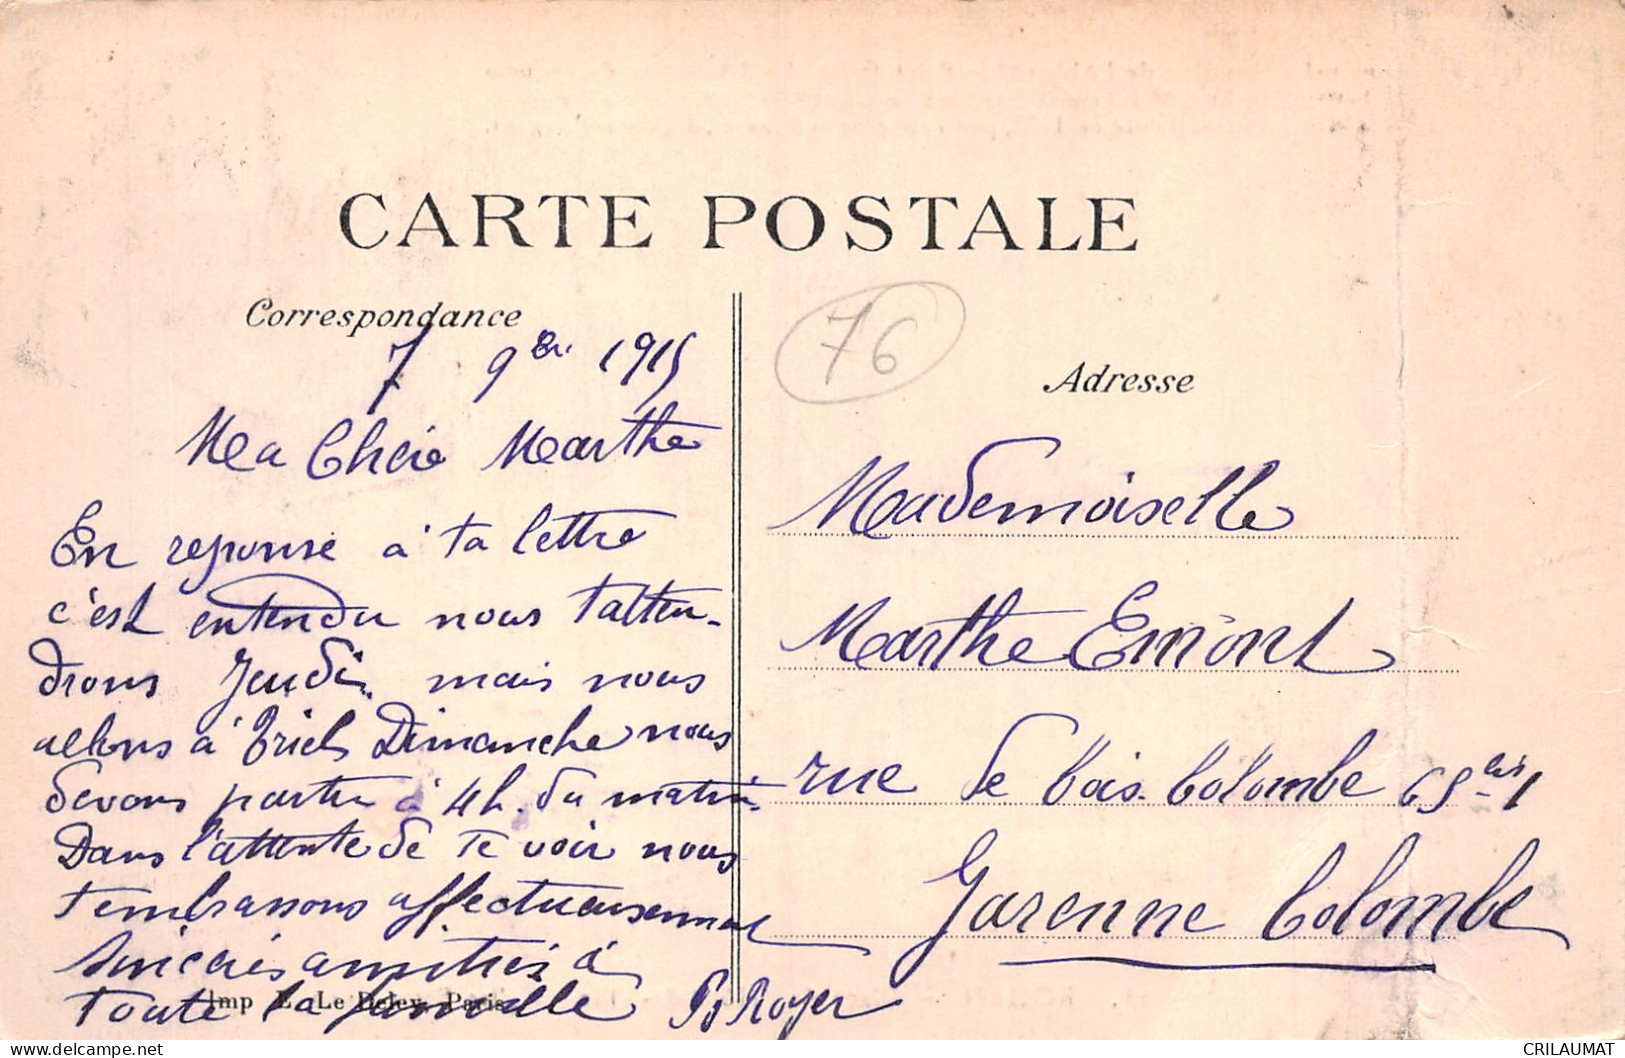 CARTE POSTALE
Correspondance
7 9bre 1915
Ma Chère Marthe
En reponse à ta lettre
c'est entendu nous t'atten-
drons Jeudi, mais nous
allons à Triel Dimanche nous
devons partir à 4h. du matin
Dans l'attente de te voir nous
t'embrassons affectueusement
Sincères amitiés à
toute la famille Royer
Imp E. Le Deley, Paris
76
Adresse
Mademoiselle
Marthe Emont
rue de bois Colombe 65
Garenne Colombe
CRILAUMAT